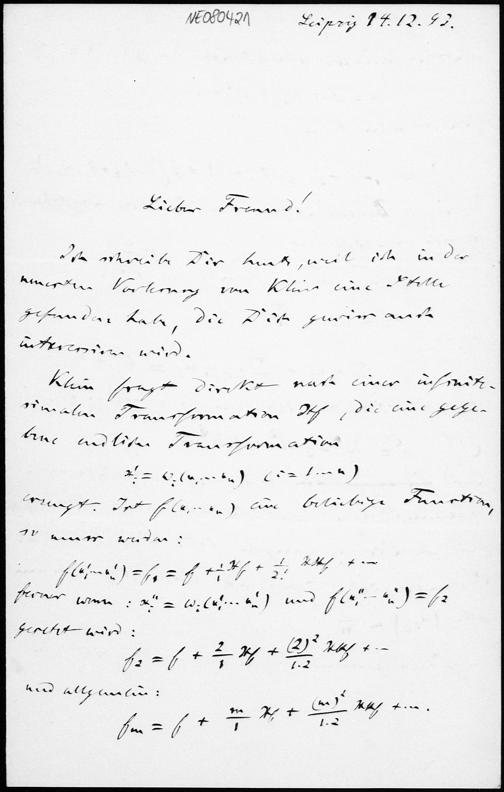 NE080421
Leipzig 14.12.93.
Lieber Freund!
Ich schreibe Dir heute, weil ich in der
neuesten Vorlesung von Klein eine Stelle
gefunden habe, die Dich gewiss auch
interessieren wird.
Klein fragt direkt nach einer infinite-
simalen Transformation Xf, die eine gege-
bene endliche Transformation
x'ᵢ = ωᵢ(x₁…xₙ) (i = 1…n)
erzeugt. Ist f(x₁…xₙ) eine beliebige Function,
so muss werden:
f(x'₁…x'ₙ) = f₁ = f + 1/1 Xf + 1/2! XXf + …
ferner wenn: x''ᵢ = ωᵢ(x'₁…x'ₙ) und f(x''₁…x''ₙ) = f₂
gesetzt wird:
f₂ = f + 2/1 Xf + (2)²/1.2 XXf + …
und allgemein:
fₘ = f + m/1 Xf + (m)²/1.2 XXf + ….